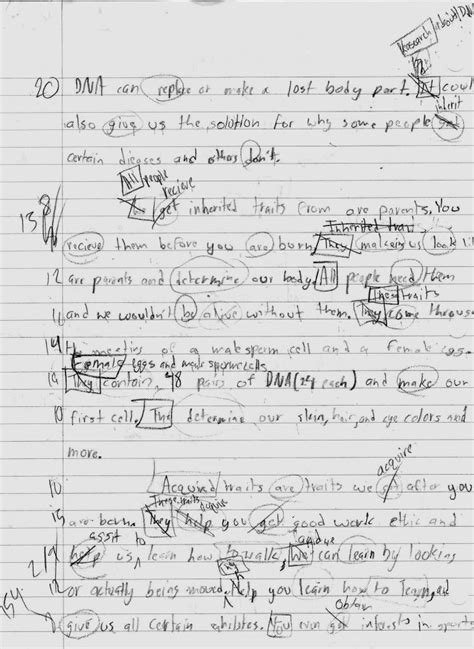 Research
20 DNA can replace or make a lost body part. It could
inherit
also give us the solution for why some people get
certain dieases and others don't.
All people recieve
13 8 get inherited traits from are parents. You
Inherited trait
recieve them before you are born. They makes us look li
12 are parents and determine our body. All people need them
These traits
11 and we wouldn't be alive without them. They come through
14 The meeting of a male sperm cell and a female egg
Female eggs and male sperm cells
19 They contain 48 pairs of DNA (24 each) and make our
10 first cell. The determine our skin, hair, and eye colors and
more.
acquire
10 Acquired traits are traits we get after you
These traits
15 are born. They help you get good work ethic and
assit to
21 help us learn how to walk. We can learn by looking
12 or actually being moved. help you learn how to learn, and
obtain
give us all certain abilites. You even get interests in sports